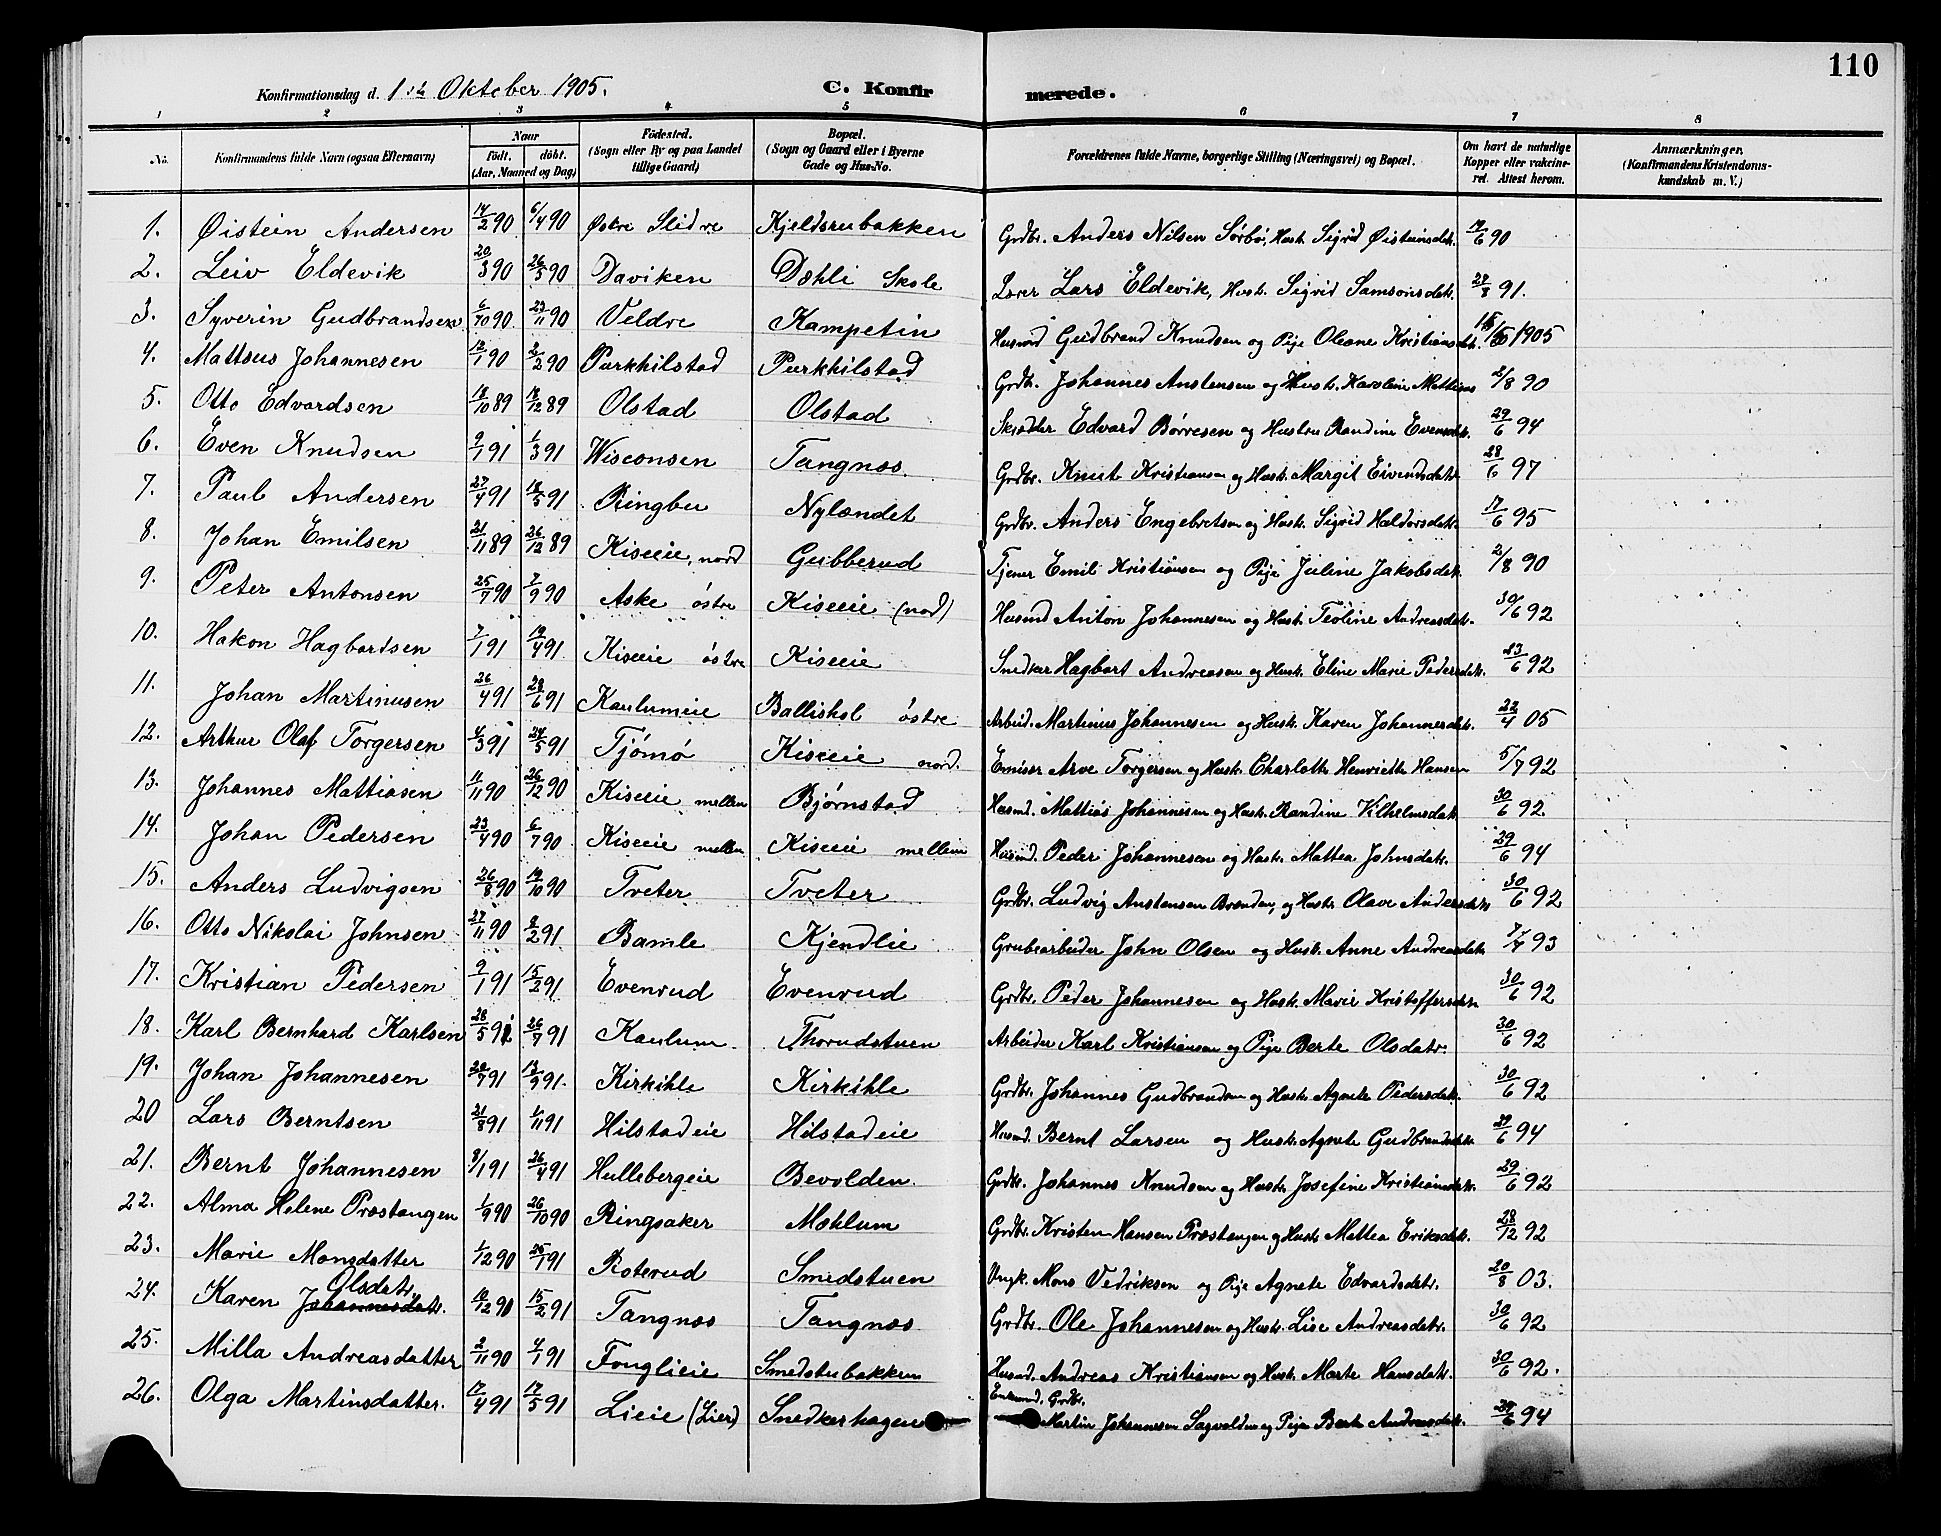 110
Konfirmationsdag d. 1ste Oktober 1905. C. Konfirmerede.
1 2 3 4 5 6 7 8
No. Konfirmandens fulde Navn (ogsaa Efternavn) Naar födt. döbt. (Aar, Maaned og Dag) Födested. (Sogn eller By og paa Landet tillige Gaard) Bopæl. (Sogn og Gaard eller i Byerne Gade og Hus-No. Forældrenes fulde Navne, borgerlige Stilling (Næringsvei) og Bopæl. Om havt de naturlige Kopper eller vakcineret. Attest herom. Anmærkninger. (Konfirmandens Kristendomskundskab m. V.)
1. Øistein Andersen 14/2 90 6/4 90 Østre Slidre Kjeldsrubakken Grdbr. Anders Nilsen Sørbø, Hust. Sigrid Øisteinsdtr. 19/6 90
2. Leiv Eldevik 20/3 90 26/5 90 Daviken Dæhli Skole Lærer Lars Eldevik, Hust. Sigrid Samsonsdtr. 27/8 91.
3. Syverin Gudbrandsen 6/10 90 23/11 90 Veldre Kampetin Husmd Gudbrand Knudsen og Pige Oleane Kristiansdtr. 1905
4. Mattæus Johannesen 12/1 90 2/2 90 Purkhilstad Purkhilstad Grdbr. Johannes Anstensen og Hust. Karoline Mattiasd 2/8 90
5. Otto Edvardsen 18/10 89 18/12 89 Olstad Olstad Skrædder Edvard Børresen og Hustru Randine Evensdtr. 29/6 94
6. Even Knudsen 9/1 91 1/3 91 Wisconsen Tangnæs. Grdbr. Knut Kristiansen og Hust. Margit Eivindsdatr 28/6 97
7. Paul Andersen 27/4 91 18/5 91 Ringbu Nylændet Grdbr. Anders Engebretsen og Hust. Sigrid Haldorsdatr. 17/6 95
8. Johan Emilsen 21/11 89 26/12 89 Kiseeie, nord Gubberud Tjener Emil Kristiansen og Pige Juline Jakobsdtr. 2/8 90
9. Peter Antonsen 25/7 90 7/9 90 Aske östre Kiseeie (nod) Husmd Anton Johannesen og Hust. Teoline Andreasdtr. 30/6 92
10. Hakon Hagbartsen 7/1 91 19/4 91. Kiseeie östre Kiseeie Snedker Hagbart Andreasen og Hust. Eline Marie Pedersdtr. 23/6 92
11. Johan Martinusen 26/4 91 28/6 91 Kaulumeie Ballishol östre Arbeid. Martinus Johannesen og Hust. Karen Johannesdtr. 22/4 05
12. Arthur Olaf Torgersen 4/3 91 24/5 91 Tjömö Kiseeie nord. Emisær Arve Torgersen og Hust. Charlotte Henriette Hansen 5/7 92
13. Johannes Mattiasen 11/11 90 26/12 90 Kiseeie mellem Bjørnstad Husmd. Mattias Johannesen og Hust. Randine Vilhelmsdatr 30/6 92.
14. Johan Pedersen 23/4 90 6/7 90 Kiseeie mellem Kiseeie mellem Husmd. Peder Johannesen og Hust. Mattea Johnsdatr. 29/6 94
15. Anders Ludvigsen 26/8 90 19/10 90 Tveter Tveter Grdbr. Ludvig Anstensen Brenden, og Hust. Olave Andersdatr 30/6 92
16. Otto Nikolai Johnsen 27/11 90 8/2 91. Bamle Kjendlie Grubearbeider John Olsen og Hust. Anne Andreasdatr. 7/7 93
17. Kristian Pedersen 9/1 91 15/2 91 Evenrud Evenrud Grdbr. Peder Johannesen og Hust. Marie Kristoffersdtr 30/6 92
18. Karl Bernhard Karlsen 28/5 91 26/7 91 Kaulum Thorudstuen Arbeider Karl Kristiansen og Pige Berte Olsdatr. 30/6 92
19. Johan Johannesen 22/7 91 13/9 91. Kirkihle Kirkihle Grdbr. Johannes Gudbrandsen og Hust. Agnete Pedersdatr. 30/6 92
20 Lars Berntsen 21/8 91 1/11 91 Hilstadeie Hilstadeie Husmd. Bernt Larsen og Hust. Agnete Gudbrandsdtr 29/6 94
21. Bernt Johannesen 8/1 91 26/4 91 Hullebergeie Bevolden. Grdbr. Johannes Knudsen og Hust. Josefine Kristiansdatr. 29/6 92
22. Alma Helene Præstangen 1/9 90 26/10 90 Ringsaker Mæhlum Grdbr. Kristen Hansen Præstangen og Hust. Mattea Eriksdatr. 28/12 92
23. Marie Monsdatter 1/12 90 25/1 91 Roterud Smedstuen Ungk. Mons Vedriksen og Pige Agnete Edvardsdatr. 20/8 03.
24. Karen Johannesdatr. Olsdatr. 10/12 90 15/2 91 Tangnæs Tangnæs Grdbr. Ole Johannesen og Hust. Lise Andreasdatr. 30/6 92
25. Milla Andreasdatter 2/11 90 4/1 91 Fonglieie Smedstubakken Husmd. Andreas Kristiansen og Hust. Marte Hansdatr. 30/6 92.
26. Olga Martinsdatter. 17/4 91 17/5 91 Lieie (Lier) Snedkerhagen Enkemd. Grdbr. Martin Johannesen Sagvolden og Pige Berte Andreasdatr. 29/6 94